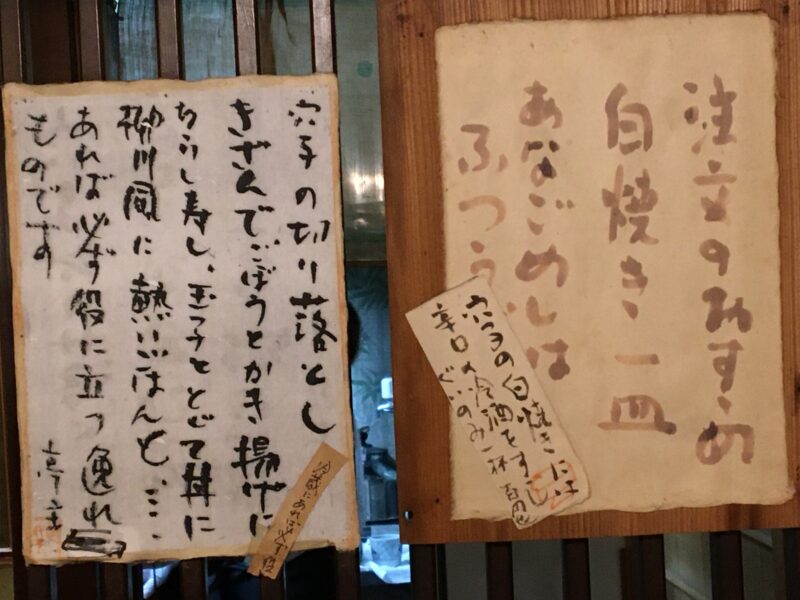 注文のおすすめ
白焼き一皿
あなごめしは
ふつう
穴子の白焼きには
辛口の冷酒をすこし
ぐいのみ一杯 百円也
穴子の切り落とし
きざんでごぼうとかき揚げに
ちらし寿し、玉子ととじて丼に
柳川風に 熱いごはんと……
あれば必ず役に立つ逸れ
ものです
亭主
冷蔵にあれば必ず役